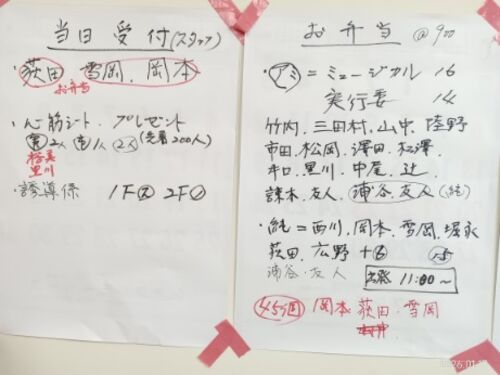 当日受付(スタッフ)
・荻田 雪岡、岡本
お弁当
・心筋シート、プレゼント
2人 1人 (先着200人)
黒川
・誘導係 1F② 2F
お弁当 @900
・アミ=ミュージカル 16
実行委 14
竹内、三田村、山中、陸野
市田、松岡、澤田、松澤
井口、黒川、中尾、辻
諌本、友人、浦谷、友人(純)
・純=西川、岡本、雪岡、堀永
荻田、広野 +⑥
浦谷・友人
11:00~
45個 岡本 荻田・雪岡